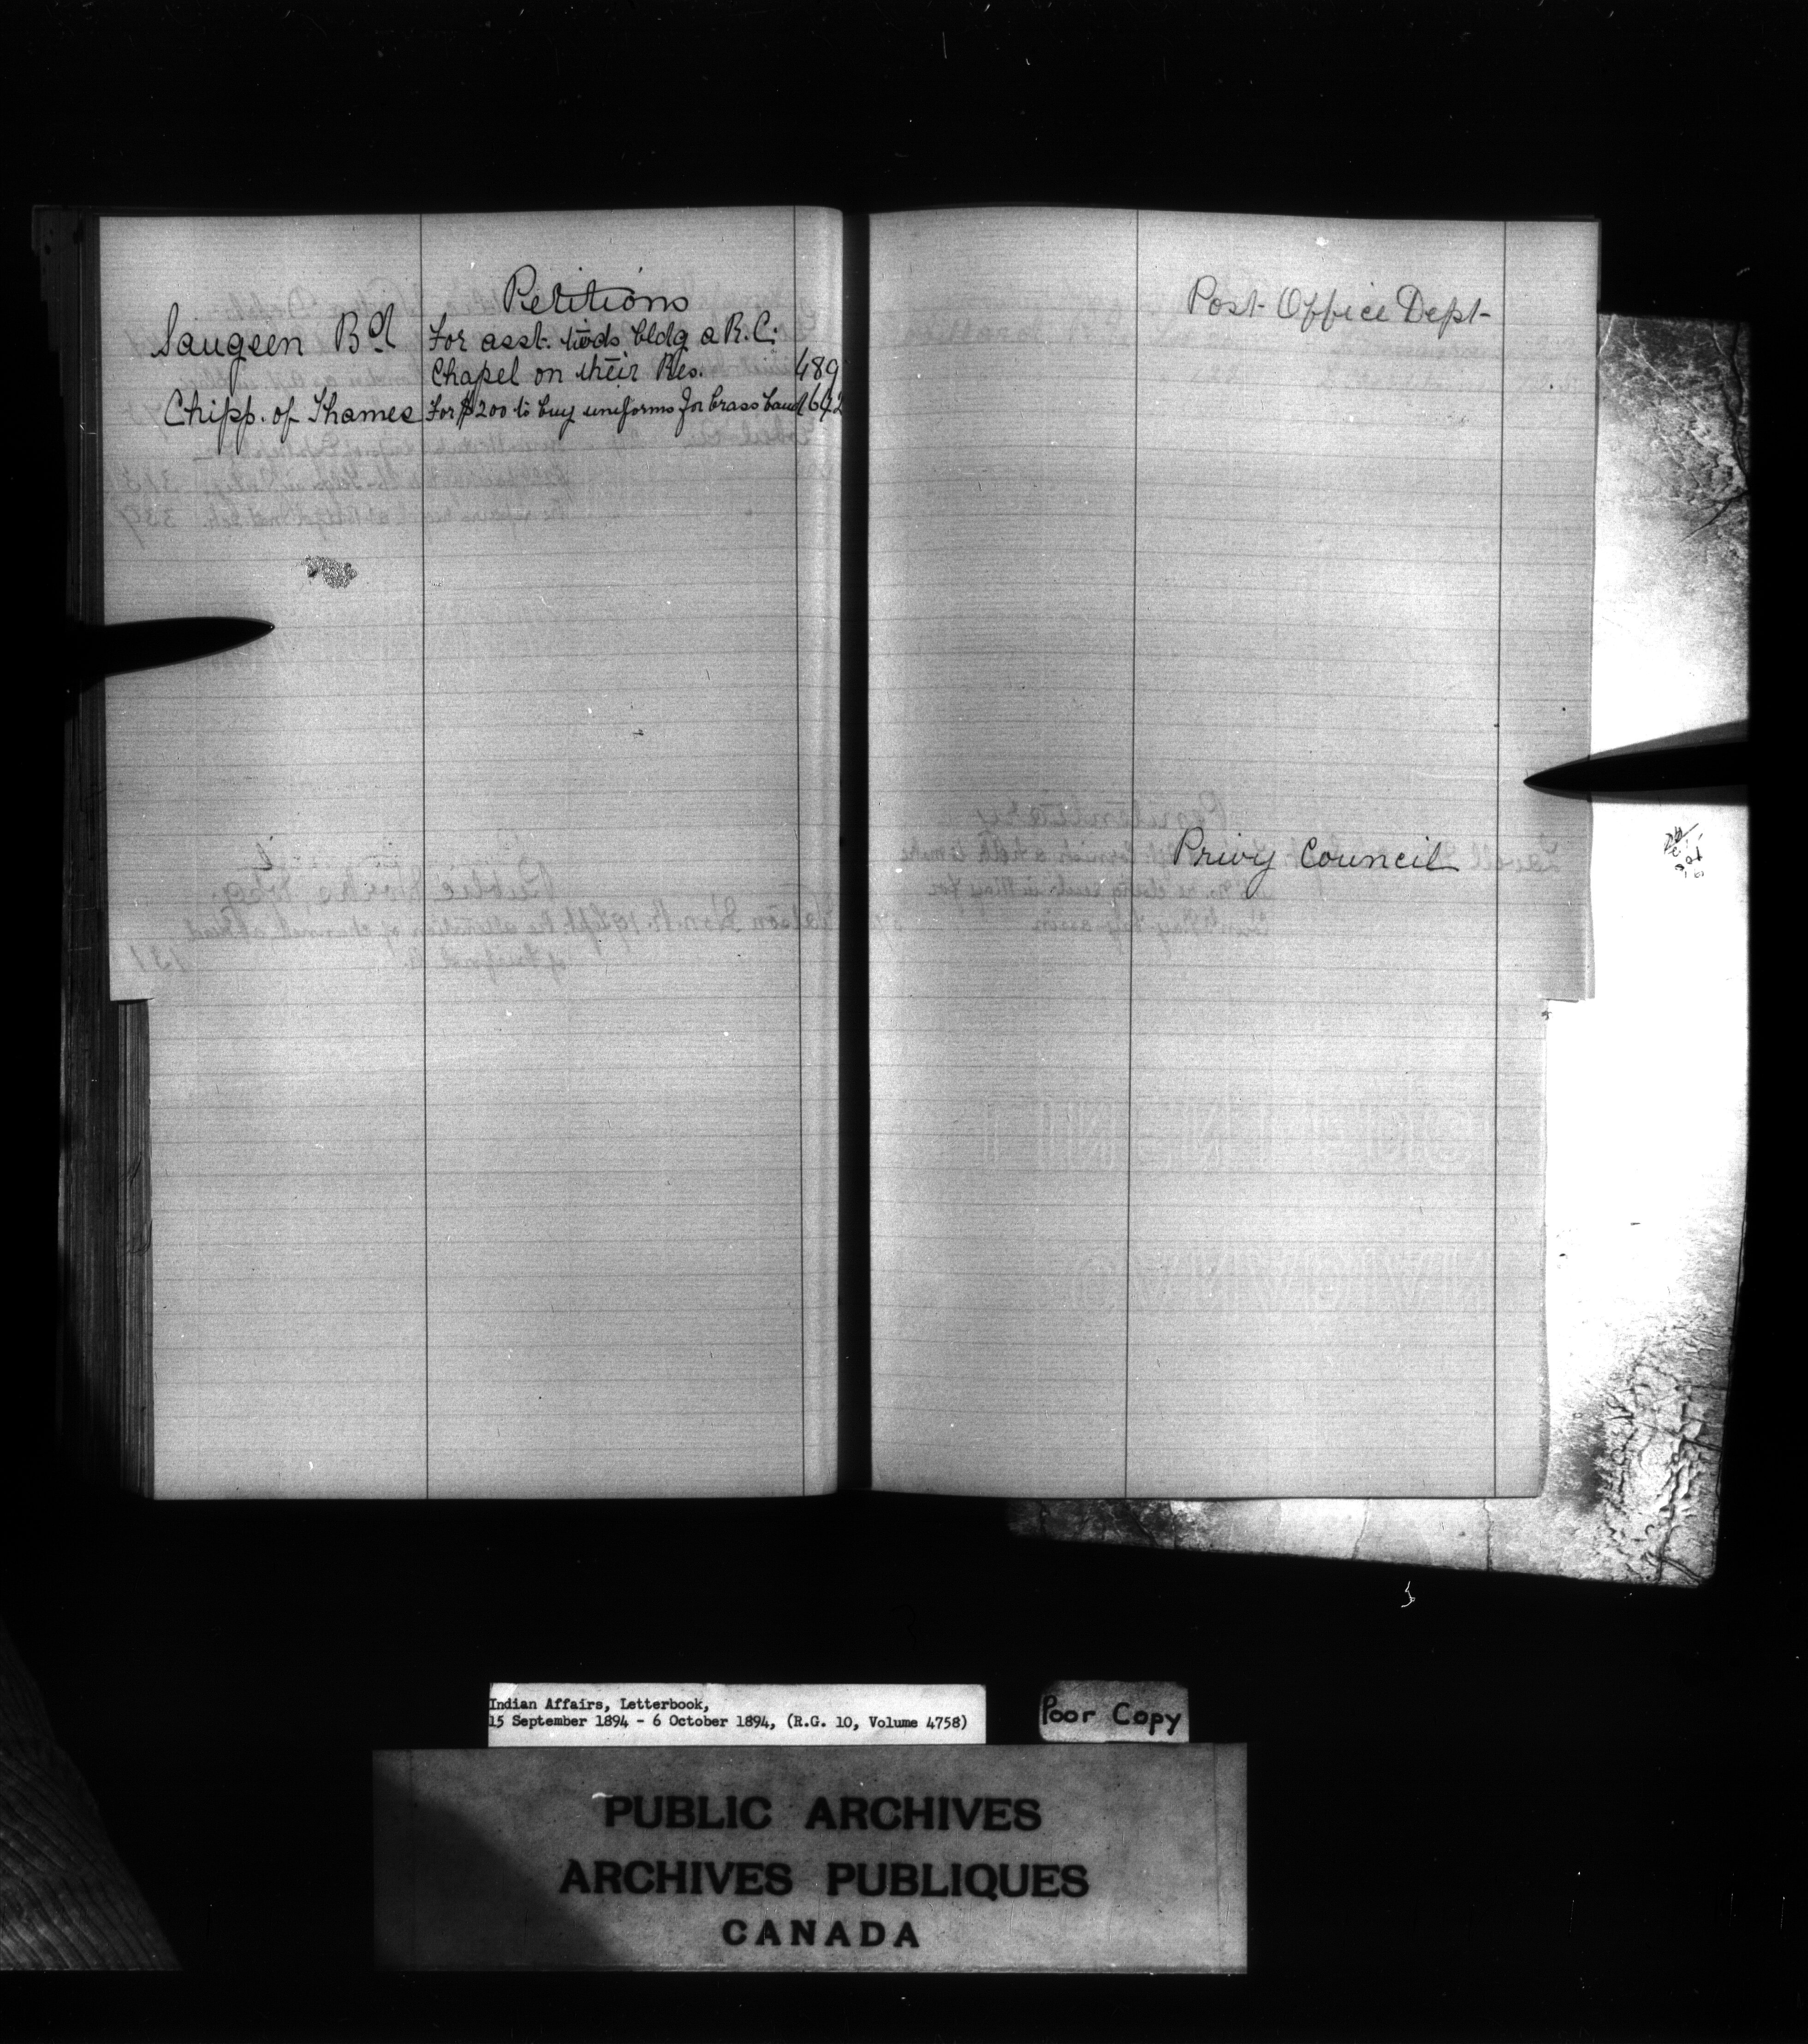 Petitions
Saugeen Bd For asst. twds bldg a R.C.
Chapel on their Res. 489
Chipp. of Thames For $200 to buy uniforms for brass band 692
Post Office Dept-
Privy Council
Indian Affairs, Letterbook,
15 September 1894 - 6 October 1894, (R.G. 10, Volume 4758)
Poor Copy
PUBLIC ARCHIVES
ARCHIVES PUBLIQUES
CANADA